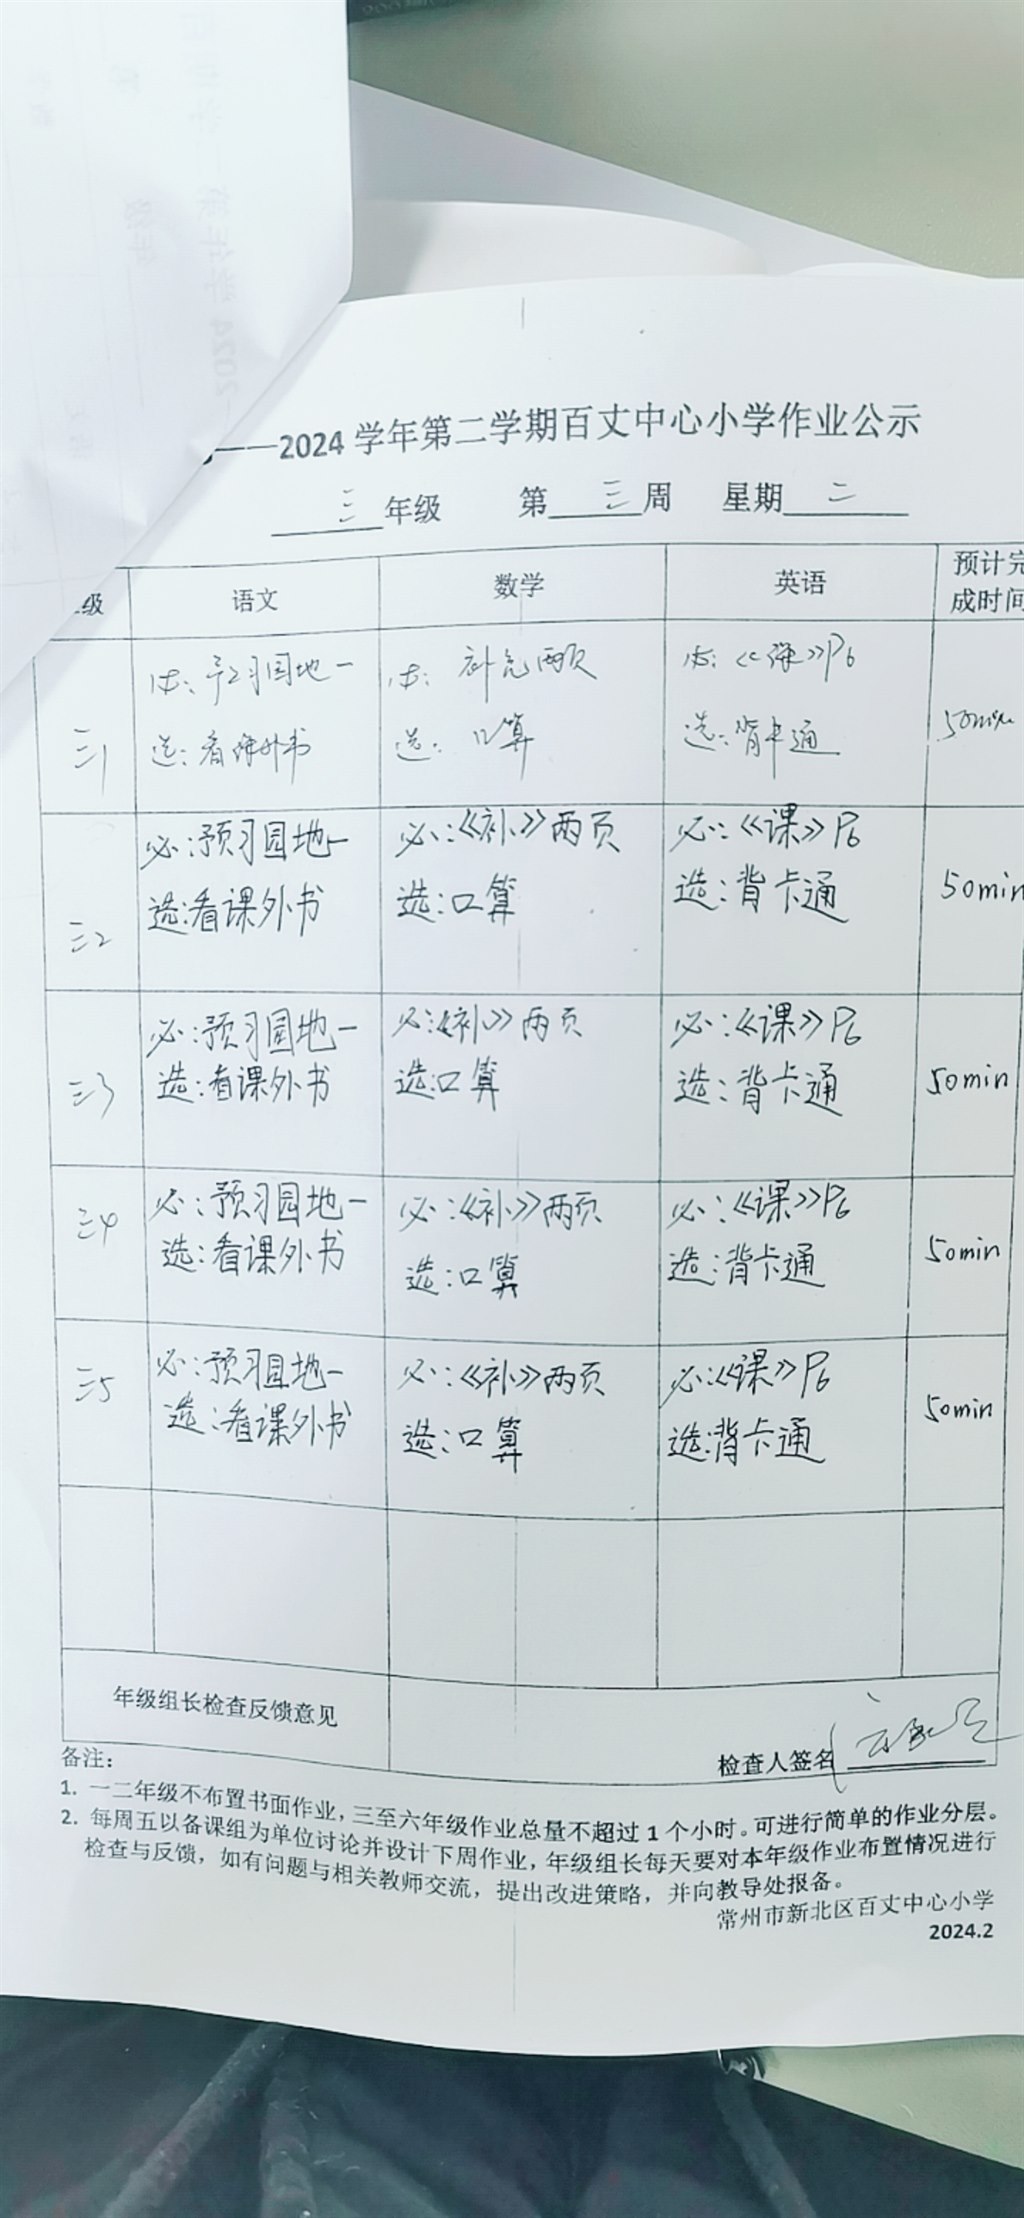 ——2024 学年第二学期百丈中心小学作业公示
三 年级 第 三 周 星期 二
级 语文 数学 英语 预计完成时间
三1 必:预习园地一 必:补充两页 必:《课》P6 50min
选:看课外书 选:口算 选:背卡通
三2 必:预习园地一 必:《补》两页 必:《课》P6 50min
选:看课外书 选:口算 选:背卡通
三3 必:预习园地一 必:《补》两页 必:《课》P6 50min
选:看课外书 选:口算 选:背卡通
三4 必:预习园地一 必:《补》两页 必:《课》P6 50min
选:看课外书 选:口算 选:背卡通
三5 必:预习园地一 必:《补》两页 必:《课》P6 50min
选:看课外书 选:口算 选:背卡通
年级组长检查反馈意见
检查人签名
备注:
1. 一二年级不布置书面作业,三至六年级作业总量不超过 1 个小时。可进行简单的作业分层。
2. 每周五以备课组为单位讨论并设计下周作业,年级组长每天要对本年级作业布置情况进行
检查与反馈,如有问题与相关教师交流,提出改进策略,并向教导处报备。
常州市新北区百丈中心小学
2024.2